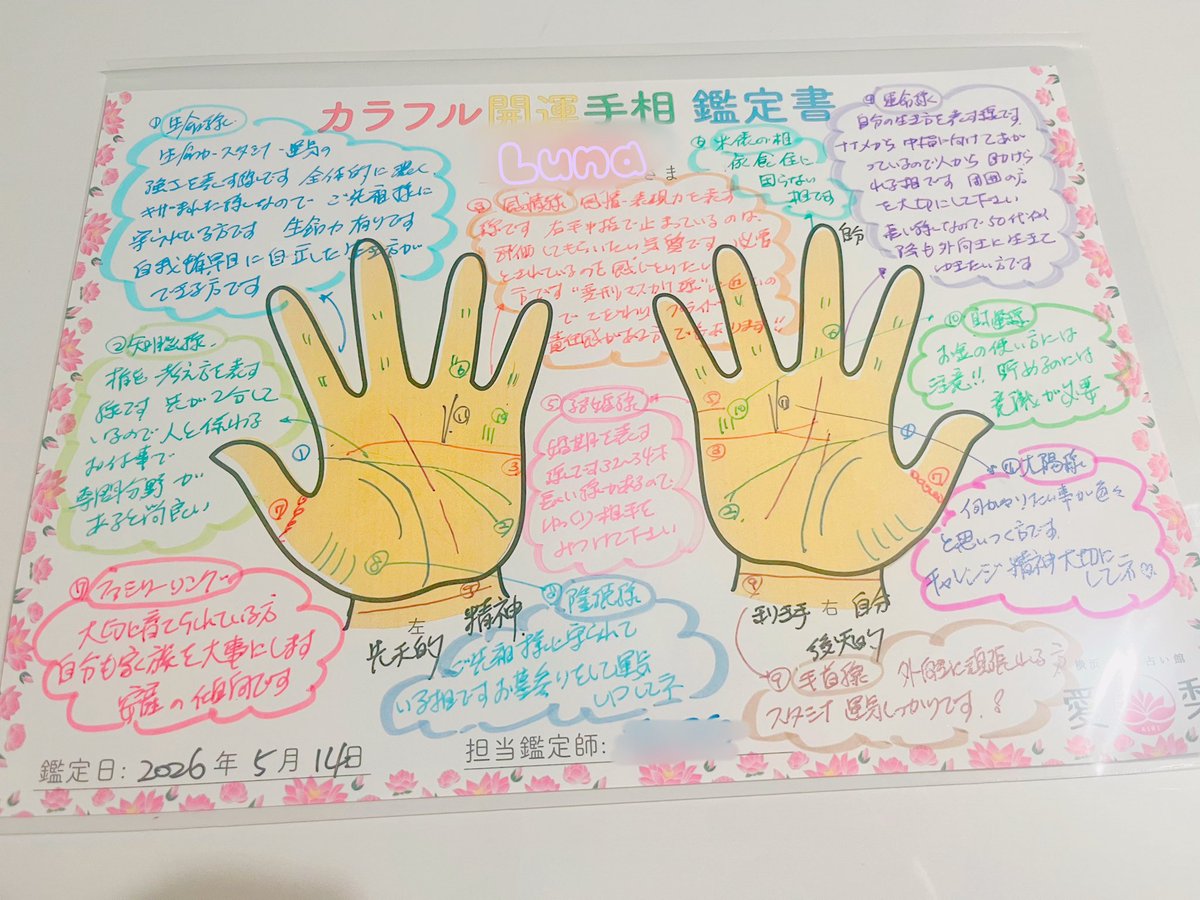 カラフル開運手相 鑑定書
Luna さま
① 生命線
生命力・スタミナ・運気の
強さを表す線です 全体的に濃く
守られている方です 生命力有ります
できる方です
② 知能線
線です 先が2合して
いるので人と係わる
お仕事で
専門分野が
あると尚良い
③ 感情線 感情・表現力を表す
線です 右も中指で止まっているのは
評価してもらいたい気質です 必要
とされているのを感じとりたい
責任感がある方でもあります!!
⑥ 米俵の相
衣食住に
困らない
相です
運命線
自分の生活を表す線です
ナナメから中指に向けてあが
っているので人から助けら
れる相です 周囲の方
を大切にして下さい
長い線なので50代以
降も外向的に生きて
ゆきたい方です
⑩ 財運線
お金の使い方には
注意!! 貯めるのには
意識が必要
⑤ 結婚線
婚期を表す
線です 32～34才
長い線があるので
ゆっくり相手を
みつけて下さい
⑪ 太陽線
何かやりたい事が色々
と思いつく方です
チャレンジ精神大切に
してネ
⑦ ファミリーリング
大切に育てられている方
自分も家族を大事にします
安産の傾向です
⑧ 陰徳線
ご先祖様に守られて
いる相です お墓参りをして運気
⑨ 手首線
スタミナ 運気しっかりです!
左
先天的
精神
利き手 右 自分
後天的
横浜
占い館
愛
鑑定日: 2026年 5月 14日
担当鑑定師: